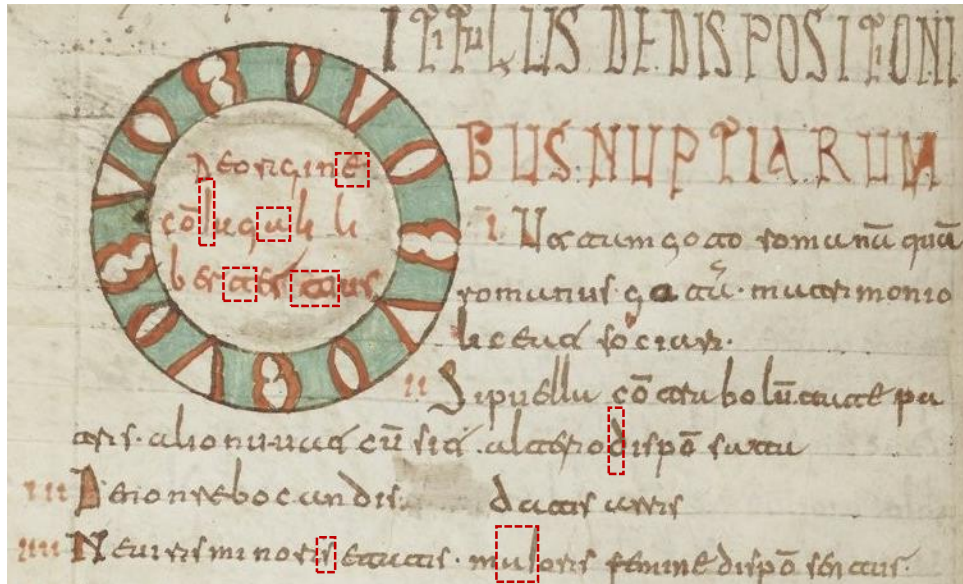 I TITULUS DE DISPOSITIONI
BUS NUPTIARUM
De origine
cōiuguali li
ber tertius
I. Ut tam goto romanā quā
romanus gotā matrimonio
liceat sociari.
II Si puella cōtra bolūtate pa
tris alio nuvat cū sit altero dispōsata
III De non rebocandis datis arris
IIII Ne viris minoris etatis maioris femine dispōsentur